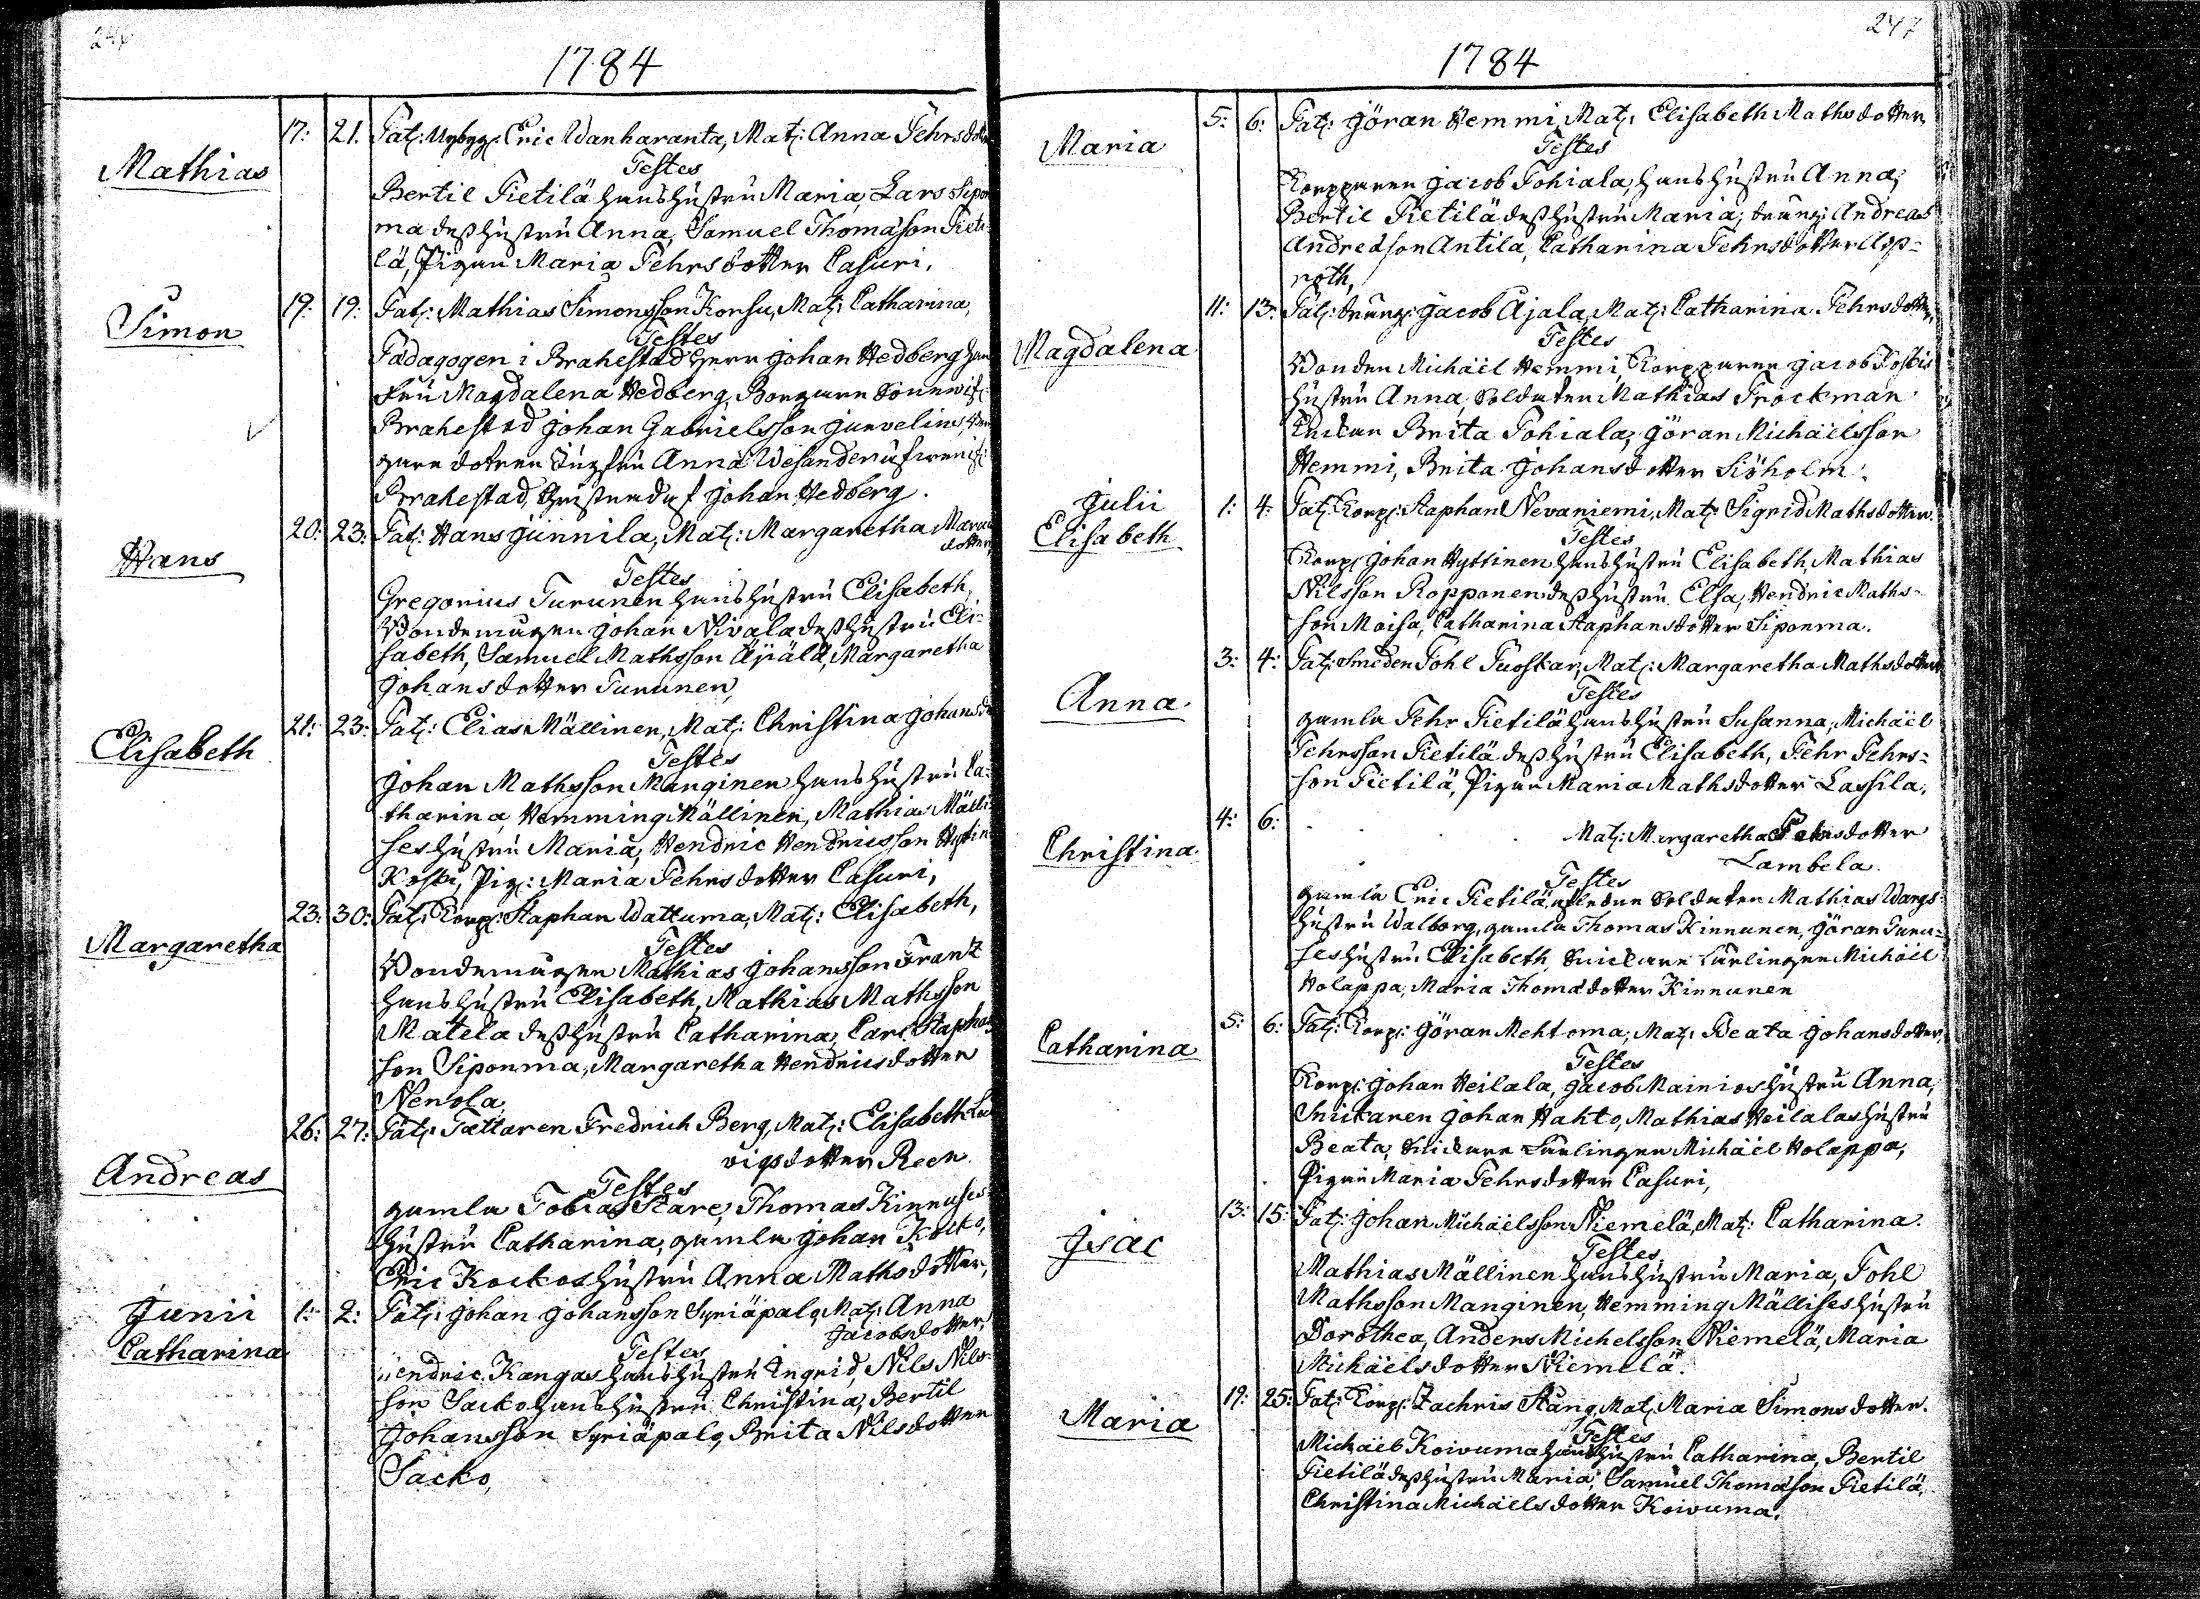 246
1784
Mathias
17: 21. Pat: Nybygg: Eric Wanharanta, Mat: Anna Pehrsdotter
Testes
Bertil Pietilä hans hustru Maria, Lars Sipon-
ma dess hustru Anna, Samuel Thomasson Pieti-
lä, Pigan Maria Pehrsdotter Casuri,
Simon
19: 19: Pat: Mathias Simonsson Korsu, Mat: Catharina,
Testes
Pædagogen i Brahestad Herr Johan Hedberg hans
fru Magdalena Hedberg, Borgare Sonen if:
Brahestad Johan Gabrielsson Junvelius, Bor-
gare dotren Jungfru Anna Wesander
Brahestad, Johan Hedberg.
Hans
20: 23: Pat: Hans Junnila, Mat: Margaretha
dotter
Testes
Gregorius Turunen hans hustru Elisabeth,
Bondemågen Johan Nivala dess hustru Eli-
sabeth, Samuel Mathsson Äijälä, Margaretha
Johansdotter Turunen,
Elisabeth
21: 23: Pat: Elias Mällinen, Mat: Christina Johansd
Testes
Johan Mathsson Manginen hans hustru Ca-
tharina, Hemming Mällinen, Mathias Mälli-
ses hustru Maria, Hendric Hendricsson
Koski, Pig: Maria Pehrsdotter Casuri,
Margaretha
23: 30: Pat: Korp: Staphan Wattuma, Mat: Elisabeth,
Testes
Bondemågen Mathias Johansson Frantz
hans hustru Elisabeth, Mathias Mathsson
Matela dess hustru Catharina, Carl Staphas
son Siponma, Margaretha Hendricsdotter
Nenola,
Andreas
26: 27: Pat: Tattaren Fredrich Berg, Mat: Elisabeth Lo
vigsdotter Reen
Testes
gamla Tobias Stare, Thomas Kinnuses
hustru Catharina, gamla Johan Kocko,
Eric Kockos hustru Anna Mathsdotter,
Junii
Catharina
1: 2: Pat: Johan Johansson Syriäpalo, Mat: Anna
Jacobsdotter,
Testes
Hendric Kangas hans hustru Ingrid, Nils Nils-
son Sacko hans hustru Christina, Bertil
Johansson Syriäpalo, Brita Nilsdotter
Sacko,
247
1784
Maria
5: 6: Pat: Jöran Hemmi, Mat: Elisabeth Mathsdotter,
Testes
Jacob Pohiala, hans hustru Anna,
Bertil Pietilä dess hustru Maria, dräng: Andreas
Andresson Antila, Catharina Pehrsdotter Asp-
roth,
Magdalena
11: 13: Pat: dräng: Jacob Ajala, Mat: Catharina Pehrsdotter,
Testes
Bonden Michäel Hemmi, Jacob
hustru Anna, Soldaten Mathias Frockman
Enkan Brita Pohiala, Jöran Michäelsson
Hemmi, Brita Johansdotter Siöholm.
Julii
Elisabeth
1: 4: Pat: Korp: Staphan Nevaniemi, Mat: Sigrid Mathsdotter
Testes
Korp: Johan Hyttinen hans hustru Elisabeth, Mathias
Nilsson Ropponen dess hustru Elsa, Hendric Maths-
son Moisa, Catharina Staphansdotter Siponma.
Anna
3: 4: Pat: Smeden Pohl Tuoskar, Mat: Margaretha Mathsdotter
Testes
gamla Pehr Pietilä hans hustru Susanna, Michäel
Pehrsson Pietilä dess hustru Elisabeth, Pehr Pehrs-
son Pietilä, Pigan Maria Mathsdotter Lassila.
Christina
4: 6: Mat: Margaretha Pehrsdotter
Lambela.
Testes
gamla Eric Pietilä, Soldaten Mathias Wangs
hustru Walborg, gamla Thomas Kinnunen, Jöran Turu-
ses hustru Elisabeth, Snickare Lärlingen Michäel
Holappa, Maria Thomadotter Kinnunen
Catharina
5: 6: Pat: Korp: Jöran Mehtoma, Mat: Beata Johansdotter,
Testes
Korp: Johan Heilala, Jacob Mainios hustru Anna,
Snickaren Johan Hahto, Mathias Heilalas hustru
Beata, Snickare Lärlingen Michäel Holappa,
Pigan Maria Pehrsdotter Casuri,
Isac
13: 15: Pat: Johan Michäelsson Niemelä, Mat: Catharina.
Testes
Mathias Mällinen hans hustru Maria, Pohl
Mathsson Manginen, Hemming Mällises hustru
Dorothea, Anders Michelsson Niemelä, Maria
Michäelsdotter Niemelä.
Maria
19: 25: Pat: Korp: Zachris Stång, Mat: Maria Simonsdotter.
Testes
Michäel Koivuma hans hustru Catharina, Bertil
Pietilä dess hustru Maria, Samuel Thomasson Pietilä,
Christina Michäelsdotter Koivuma.